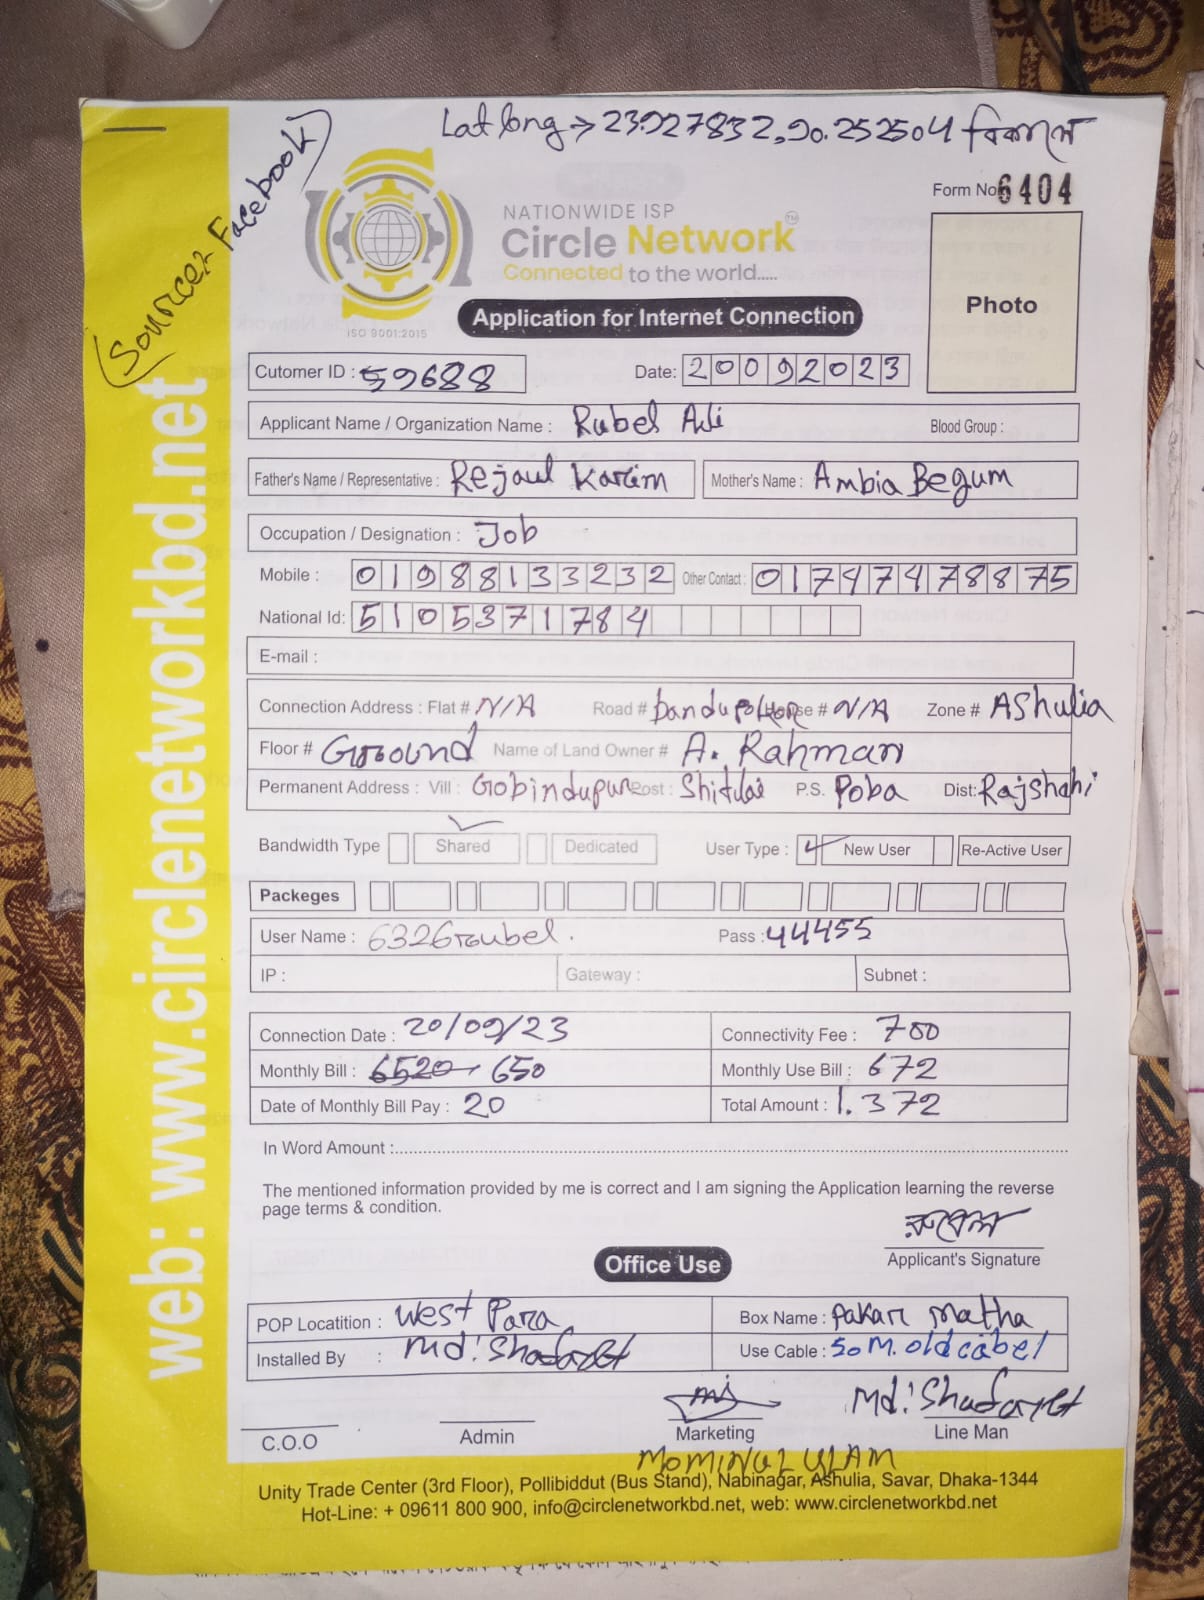 Lat long → 23.927832, 90.252504 বিকাশে
(Source Facebook)
Form No 6404
NATIONWIDE ISP
Circle Network TM
Connected to the world.....
ISO 9001:2015
Application for Internet Connection
Photo
Cutomer ID : 59688 Date: 20092023
Applicant Name / Organization Name : Rubel Ali Blood Group :
Father's Name / Representative : Rejaul Karim Mother's Name : Ambia Begum
Occupation / Designation : Job
Mobile : 01988133232 Other Contact : 01747478875
National Id: 5105371784
E-mail :
Connection Address : Flat # N/A Road # Dandupokor House # N/A Zone # AShulia
Floor # Ground Name of Land Owner # A. Rahman
Permanent Address : Vill : Gobindupur Post : Shitlai P.S. Poba Dist: Rajshahi
Bandwidth Type Shared Dedicated User Type : New User Re-Active User
Packeges
User Name : 6326roubel. Pass : 44455
IP : Gateway : Subnet :
Connection Date : 20/09/23 Connectivity Fee : 700
Monthly Bill : 6520 650 Monthly Use Bill : 672
Date of Monthly Bill Pay : 20 Total Amount : 1.372
In Word Amount :
The mentioned information provided by me is correct and I am signing the Application learning the reverse
page terms & condition.
রুবেল
Applicant's Signature
Office Use
POP Locatition : West Para Box Name : Pakar Matha
Installed By : Md: Shafayet Use Cable : 50 M. old cabel
Md: Shafayet
C.O.O Admin Marketing Line Man
MOMINUL ISLAM
Unity Trade Center (3rd Floor), Pollibiddut (Bus Stand), Nabinagar, Ashulia, Savar, Dhaka-1344
Hot-Line: + 09611 800 900, info@circlenetworkbd.net, web: www.circlenetworkbd.net
web: www.circlenetworkbd.net